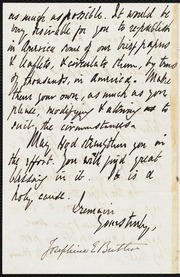 as much as possible. It would be
very desirable for you to republish
in America some of our brief papers
& leaflets, & circulate them, by tens
of thousands, in America. Make
them your own, as much as you
please, modifying & altering as to
suit the circumstances.
May God strengthen you in
the effort. You will find great
blessing in it. It is a
holy cause.
I remain
Yours truly,
Josephine E Butler